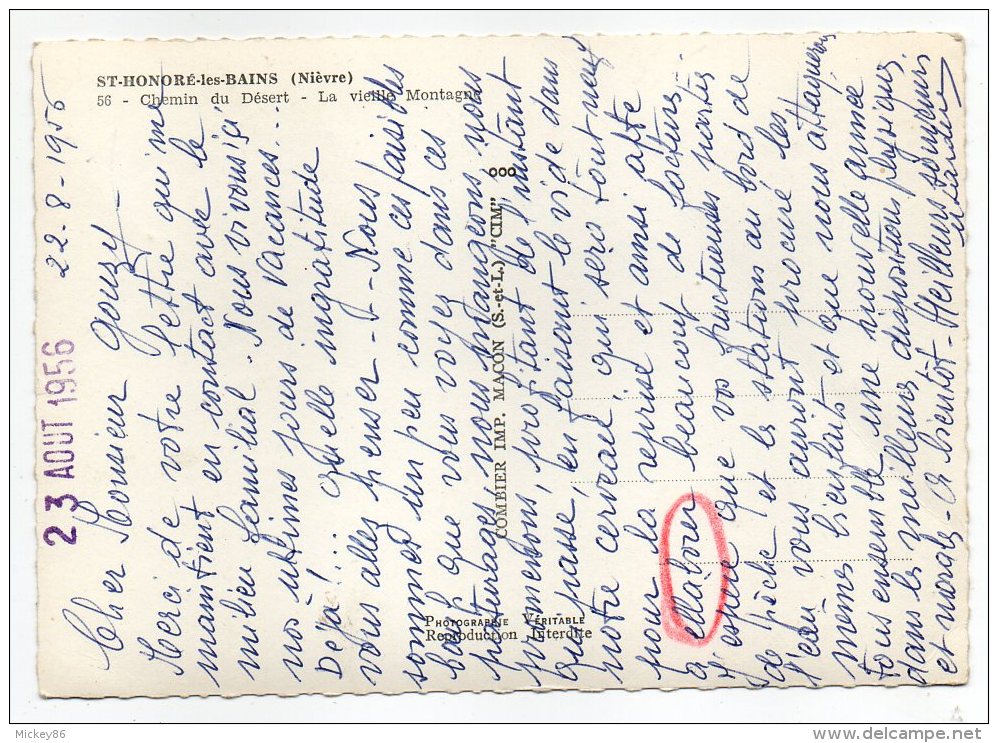 ST-HONORÉ-les-BAINS (Nièvre)
56 - Chemin du Désert - La vieille Montagne
23 AOUT 1956
22-8-1956
Cher Monsieur Gouzy -
Merci de votre lettre qui me
maintient en contact avec le
milieu familial - Nous vivons ici
nos ultimes jours de vacances...
Déjà!... quelle ingratitude
vous allez penser - - Nous
sommes un peu comme ces paisibles
bœufs que vous voyez dans ces
pâturages, nous mangeons, nous
promenons, profitant de l'instant
qui passe, en faisant le vide dans
notre cerveau qui sera tout neuf
pour la reprise et ainsi apte
à ellaborer beaucoup de factures.
J'espère que vos fructueuses parties
de pêche et la station au bord de
l'eau vous auront procuré les
mêmes bienfaits et que nous attaquerons
tous ensemble une nouvelle année
dans les meilleures dispositions physiques
et morales - A bientôt - Meilleurs souvenirs
COMBIER IMP. MACON (S.-et-L.) "CIM"
PHOTOGRAPHIE VÉRITABLE
Reproduction Interdite
Mickey86
delcampe.net